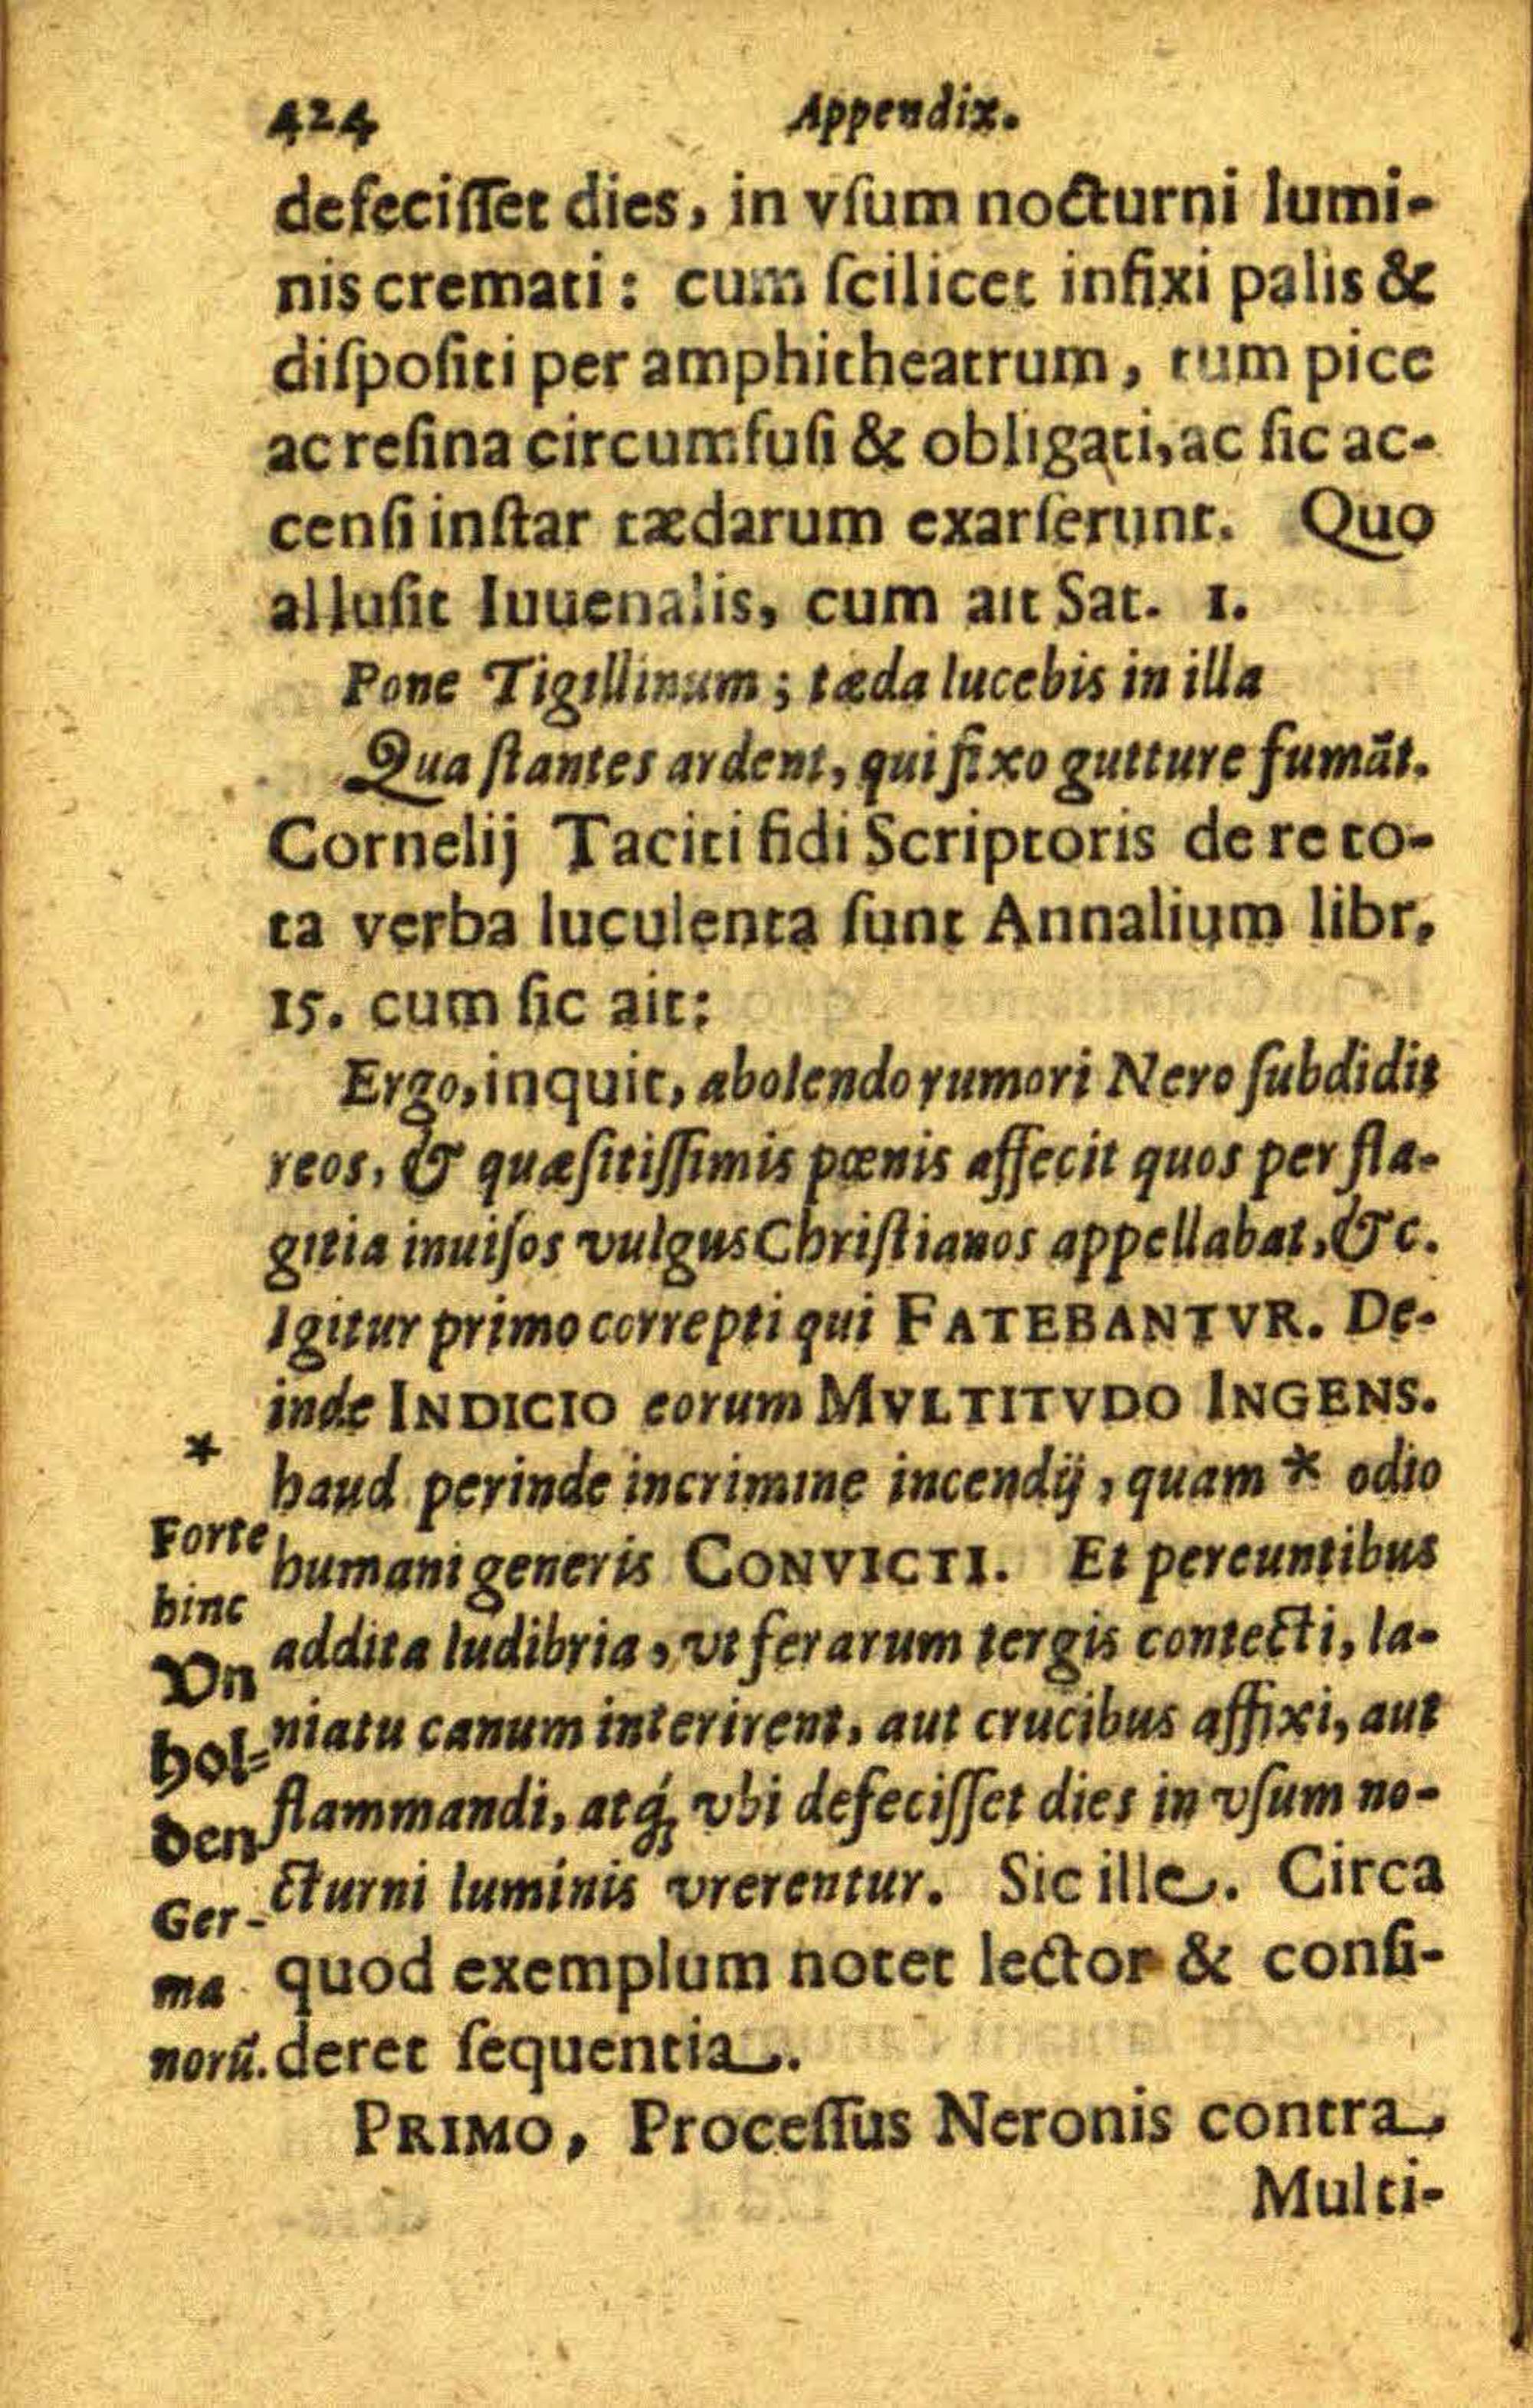 424 Appendix.
defeciſſet dies, in vſum nocturni lumi-
nis cremati: cum ſcilicet infixi palis &
diſpoſiti per amphitheatrum, tum pice
ac reſina circumfuſi & obligati, ac ſic ac-
cenſi inſtar tædarum exarſerunt. Quo
alluſit Iuuenalis, cum ait Sat. 1.
Pone Tigillinum; tæda lucebis in illa
Qua ſtantes ardent, qui fixo gutture fumãt.
Cornelij Taciti fidi Scriptoris de re to-
ta verba luculenta ſunt Annalium libr.
15. cum ſic ait:
Ergo, inquit, abolendo rumori Nero ſubdidit
reos, & quæſitiſſimis pœnis affecit quos per fla-
gitia inuiſos vulgus Chriſtianos appellabat, &c.
Igitur primo correpti qui FATEBANTVR. De-
inde INDICIO eorum MVLTITVDO INGENS.
haud perinde in crimine incendij, quam * odio
humani generis CONVICTI. Et pereuntibus
addita ludibria, vt ferarum tergis contecti, la-
niatu canum interirent, aut crucibus affixi, aut
flammandi, atq́; vbi defeciſſet dies in vſum no-
cturni luminis vrerentur. Sic ille. Circa
quod exemplum notet lector & conſi-
deret ſequentia.
PRIMO, Proceſſus Neronis contra
Multi-
*
Forte
hinc
Vn
hol-
den
Ger-
ma
norũ.